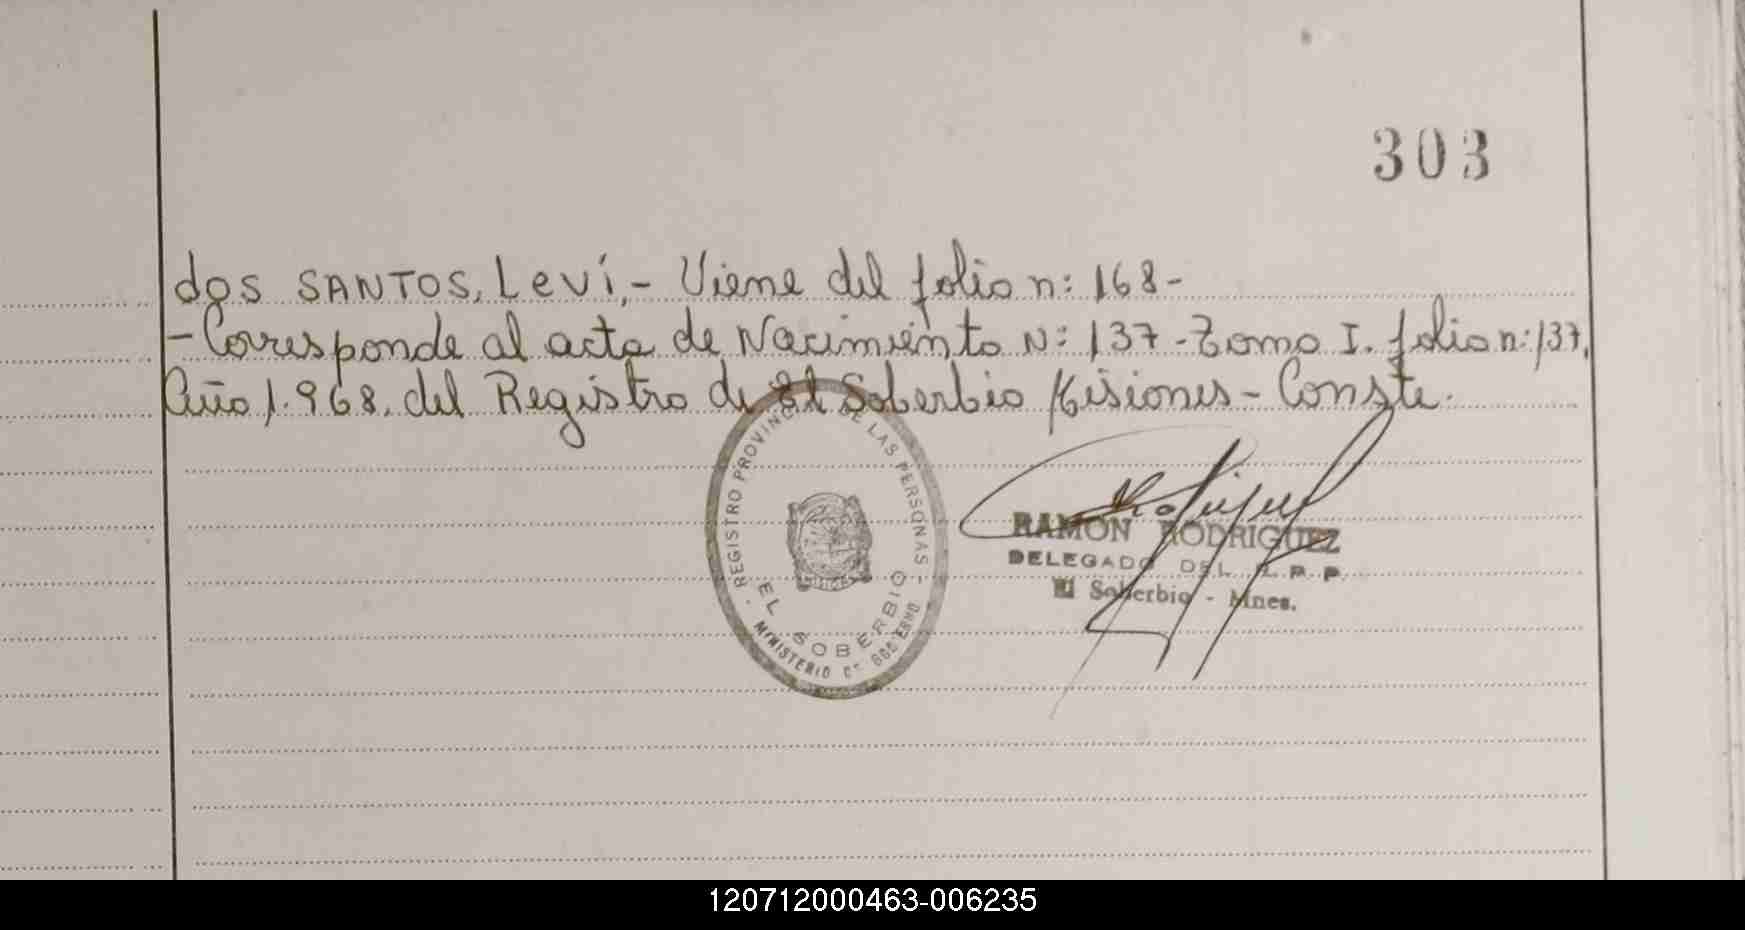 303
dos SANTOS, Leví,- Viene del folio n: 168-
-Corresponde al acta de Nacimiento N: 137-Tomo I. folio n: 137,
Año 1.968, del Registro de El Soberbio Misiones- Conste.
REGISTRO PROVINCIAL DE LAS PERSONAS -
EL SOBERBIO
MINISTERIO DE GOBIERNO
RAMON RODRIGUEZ
DELEGADO DEL R. P. P.
El Soberbio - Mnes.
120712000463-006235